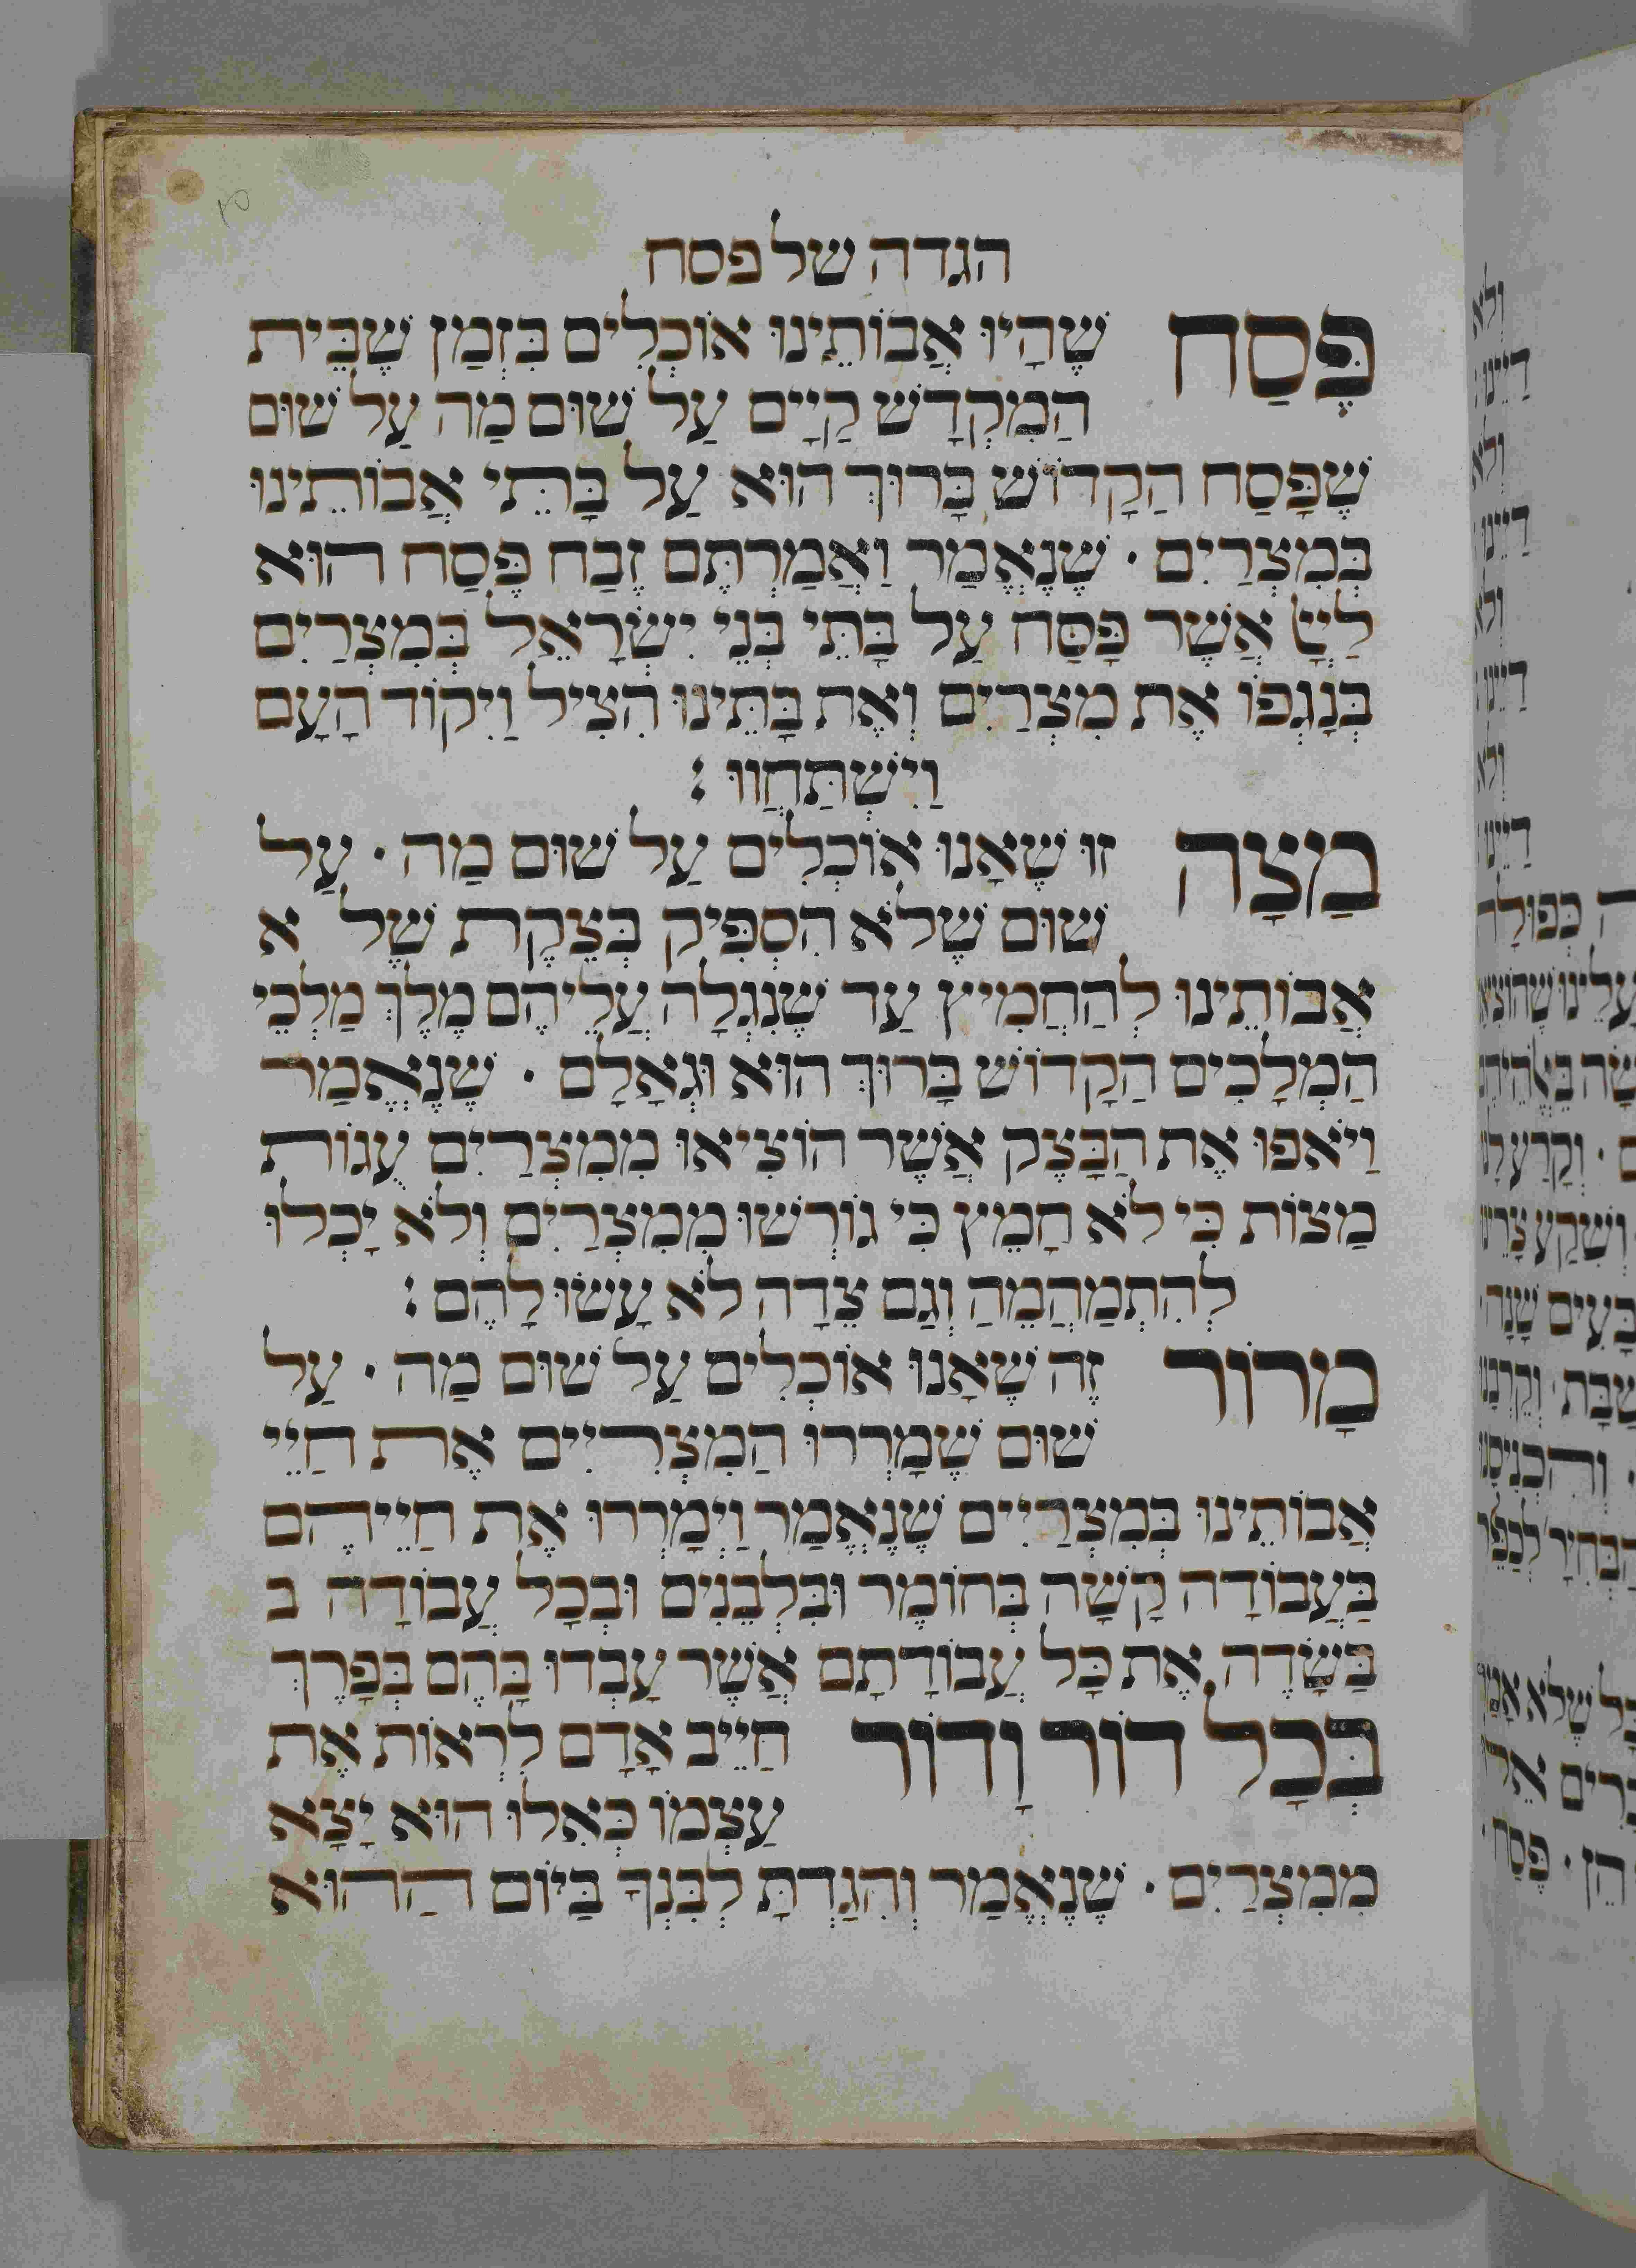 הגדה של פסח
פֶּסַח שֶׁהָיוּ אֲבוֹתֵינוּ אוֹכְלִים בִּזְמַן שֶׁבֵּית
הַמִקְדָשׁ קַיָים עַל שׁוּם מַה עַל שׁוּם
שֶׁפָּסַח הַקָדוֹשׁ בָּרוּךְ הוּא עַל בָּתֵּי אֲבוֹתֵינוּ
בְּמִצְרַיִם · שֶׁנֶאֱמַר וַאֲמַרְתֶּם זֶבַח פֶּסַח הוּא
לַיְיָ אֲשֶׁר פָּסַח עַל בָּתֵּי בְּנֵי יִשְׂרָאֵל בְּמִצְרַיִם
בְּנָגְפּוֹ אֶת מִצְרַיִם וְאֶת בָּתֵּינוּ הִצִיל וַיִקוֹד הָעָם
וַיִשְׁתַּחֲווּ :
מַצָה זוּ שֶׁאָנוּ אוֹכְלִים עַל שׁוּם מַה · עַל
שׁוּם שֶׁלֹא הִסְפִּיק בְּצֵקֶת שֶׁל א
אֲבוֹתֵינוּ לְהַחֲמִיץ עַד שֶׁנִגְלָה עֲלֵיהֶם מֶלֶךְ מַלְכֵי
הַמְלָכִים הַקָדוֹשׁ בָּרוּךְ הוּא וּגְאָלָם · שֶׁנֶאֱמַר
וַיֹאפוּ אֶת הַבָּצֵק אֲשֶׁר הוֹצִיאוּ מִמִצְרַיִם עֻגוֹת
מַצוֹת כִּי לֹא חָמֵץ כִּי גוֹרְשׁוּ מִמִצְרַיִם וְלֹא יָכְלוּ
לְהִתְמַהֲמֵהַ וְגַם צֵדָה לֹא עָשׂוּ לָהֶם :
מָרוֹר זֶה שֶׁאָנוּ אוֹכְלִים עַל שׁוּם מַה · עַל
שׁוּם שֶׁמָרְרוּ הַמִצְרִיִים אֶת חַיֵי
אֲבוֹתֵינוּ בְּמִצְרַיִים שֶׁנֶאֱמַר וַיְמָרְרוּ אֶת חַיֵיהֶם
בַּעֲבוֹדָה קָשָׁה בְּחוֹמֶר וּבִּלְבֵנִים וּבְכָל עֲבוֹדָה ב
בַּשָׂדֶה אֶת כָּל עֲבוֹדָתָם אֲשֶׁר עָבְדוּ בָּהֶם בְּפָרֶךְ
בְּכָל דוֹר וָדוֹר חַיֵיב אָדָם לִרְאוֹת אֶת
עַצְמוֹ כְּאִלוּ הוּא יָצָא
מִמִצְרַיִם · שֶׁנֶאֱמַר וְהִגַדְתָּ לְבִּנְךָ בַּיוֹם הַהוּא